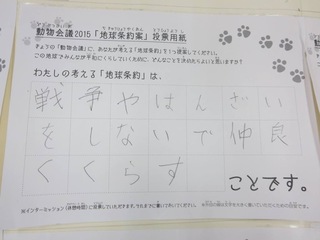 動物会議2015「地球条約案」投票用紙
きょうの「動物会議」に、あなたが考える「地球条約」を1つ提案してください。
この地球でみんなが平和にくらしていくために、どんなことを決めたらよいと思いますか?
わたしの考える「地球条約」は、
戦争やはんざい
をしないで仲良
くくらす
ことです。
※インターミッション(休憩時間)に投票していただきます。